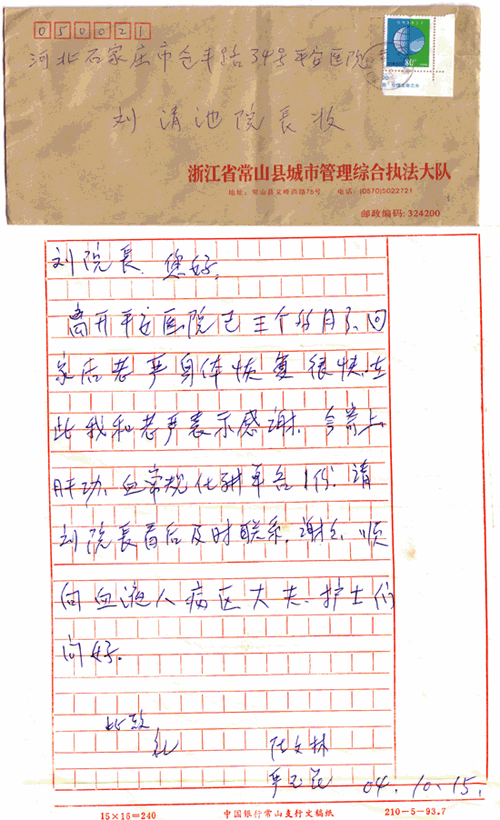 050021
河北石家庄市仓丰路34号平安医院
80
刘清池院长收
浙江省常山县城市管理综合执法大队
地址：常山县文峰西路75号 电话：(0570)5022721
邮政编码：324200
刘院长，您好，
离开平安医院已三个多月了，回
家后老严身体恢复很快，在
此我和老严表示感谢。今寄上
肝功、血常规化验单各1份，请
刘院长看后及时联系，谢谢，顺
向血液人病区大夫、护士们
问好。
此致
礼
严玉花 04.10.15.
15×16=240 中国银行常山支行文稿纸 210-5-93.7